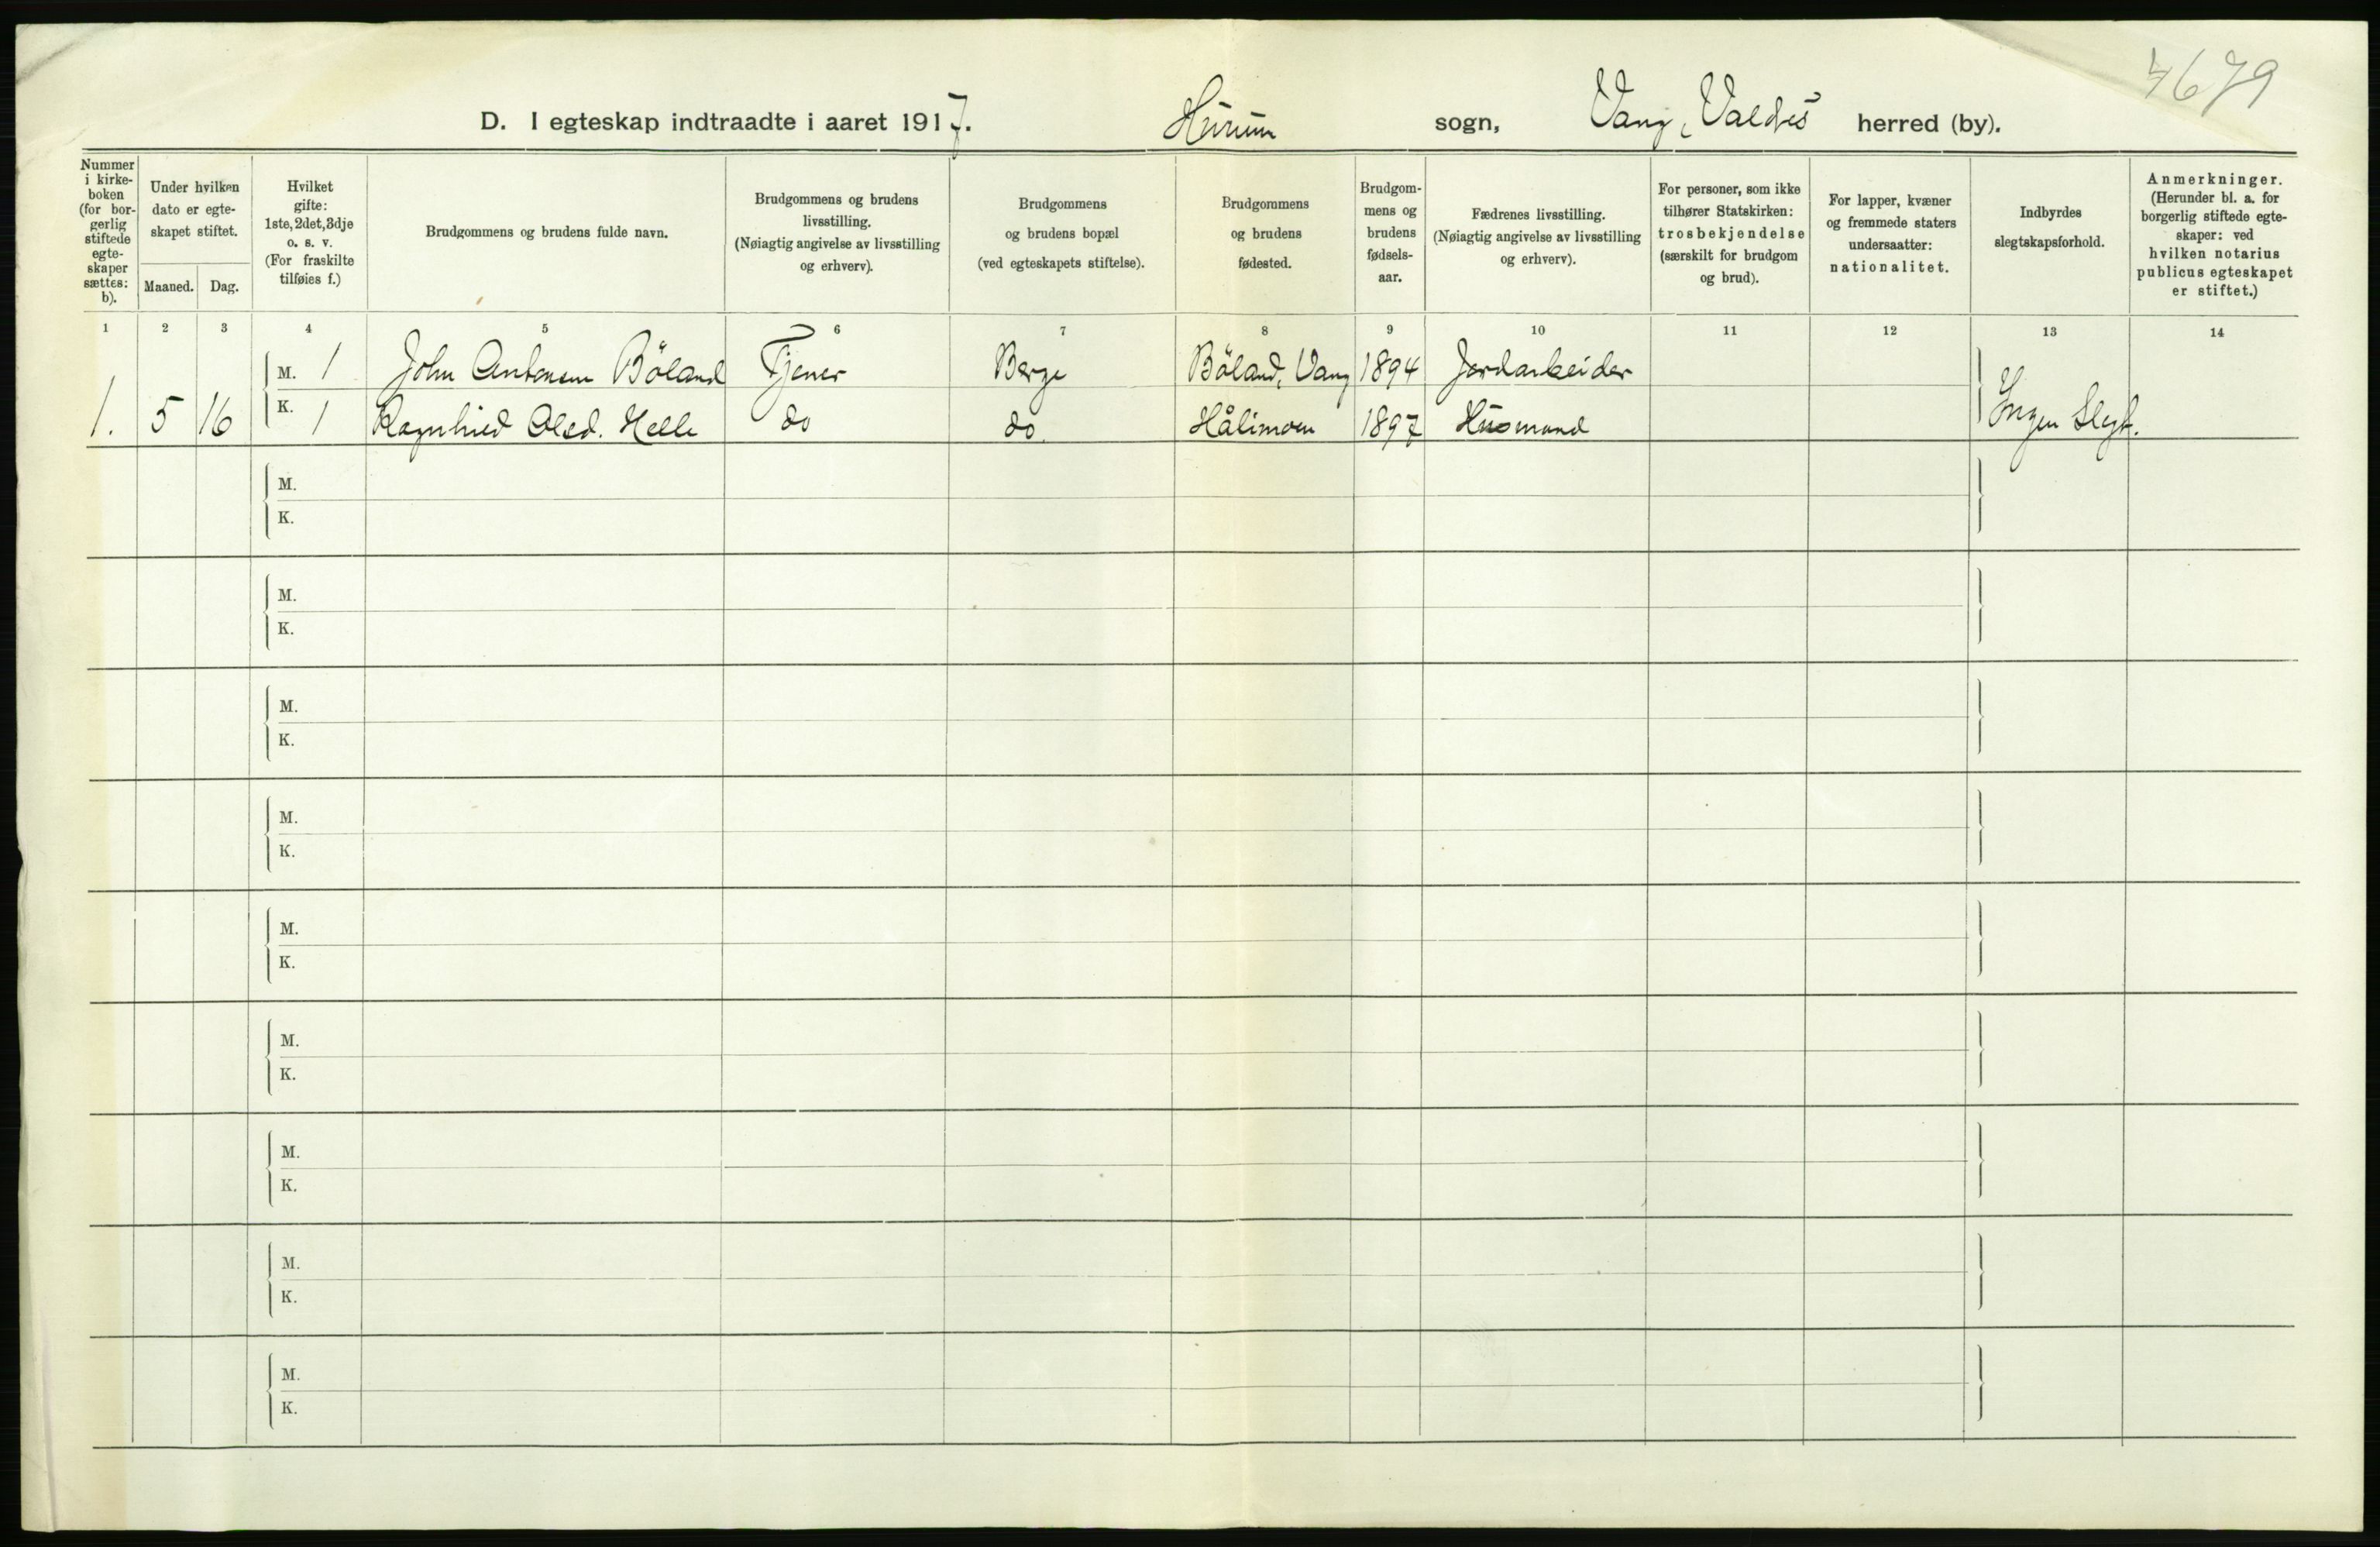 4679
D. I egteskap indtraadte i aaret 1917. Hurum sogn, Vang, Valdres herred (by).
Nummer i kirke-boken (for bor-gerlig stiftede egte-skaper sættes: b).
Under hvilken dato er egte-skapet stiftet.
Maaned. Dag.
Hvilket gifte: 1ste, 2det, 3dje o. s. v. (For fraskilte tilføies f.)
Brudgommens og brudens fulde navn.
Brudgommens og brudens livsstilling. (Nøiagtig angivelse av livsstilling og erhverv).
Brudgommens og brudens bopæl (ved egteskapets stiftelse).
Brudgommens og brudens fødested.
Brudgom-mens og brudens fødsels-aar.
Fædrenes livsstilling. (Nøiagtig angivelse av livsstilling og erhverv).
For personer, som ikke tilhører Statskirken: trosbekjendelse (særskilt for brudgom og brud).
For lapper, kvæner og fremmede staters undersaatter: nationalitet.
Indbyrdes slegtskapsforhold.
Anmerkninger. (Herunder bl. a. for borgerlig stiftede egte-skaper: ved hvilken notarius publicus egteskapet er stiftet.)
1 2 3 4 5 6 7 8 9 10 11 12 13 14
M. 1 John Antonsen Böland Tjener Berge Böland, Vang 1894 Jordarbeider
1. 5 16 K. 1 Ragnhild Olsd. Helle do do. Hålimoen 1897 Husmand Ingen Slegt.
M.
K.
M.
K.
M.
K.
M.
K.
M.
K.
M.
K.
M.
K.
M.
K.
M.
K.